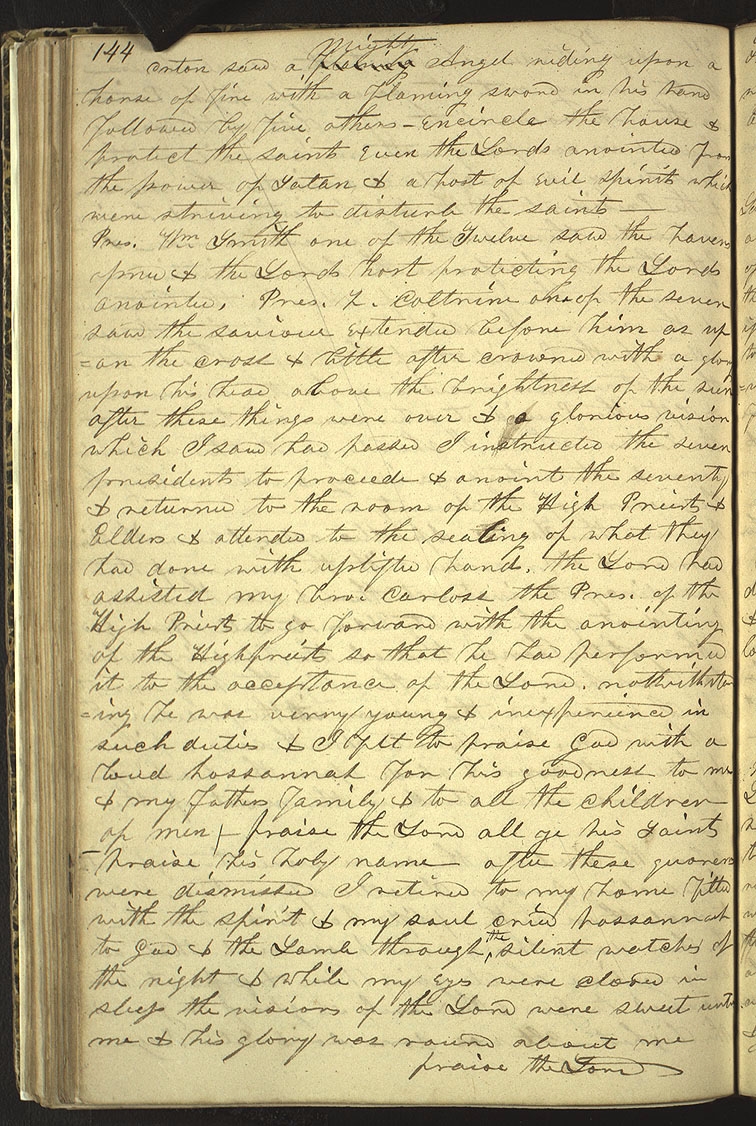 144
Mighty
enton saw a Holling Angel riding upon a
horse of fire with a flaming sword in his hand
followed by five others – encircle the house &
protect the saints even the Lords anointed from
the power of Satan & a host of evil spirits which
were striving to disturb the saints –
Pres. Wm Smith one of the Twelve saw the havens
opned & the Lords host protecting the Lords
anointed. Pres. Z. Coltrine one of the seven
saw the saviour extended before him as up
=on the cross & little after crowned with a glory
upon his head above the brightness of the sun
after these things were over & a glorious vision
which I saw had passed I instructed the seven
presidents to proceede & anoint the seventy
& returned to the room of the High Priests &
Elders & attended to the sealing of what they
had done with uplifted hand. the Lord had
assisted my bro. Carloss the Pres. of the
High Priests to go forward with the anointing
of the Highpriests so that he had performed
it to the acceptance of the Lord. notwithstan
=ing he was verry young & inexperienced in
such duties & I felt to praise God with a
loud hossannah for his goodness to me
& my fathers family & to all the children
of men, – praise the Lord all ye his saints
– praise his holy name after these quorems
were dismissed I retired to my home filled
with the spirit & my soul cried hossannah
to God & the Lamb through the silent watches of
the night & while my eyes were closed in
sleep the visions of the Lord were sweet unto
me & his glory was round about me
praise the Lord